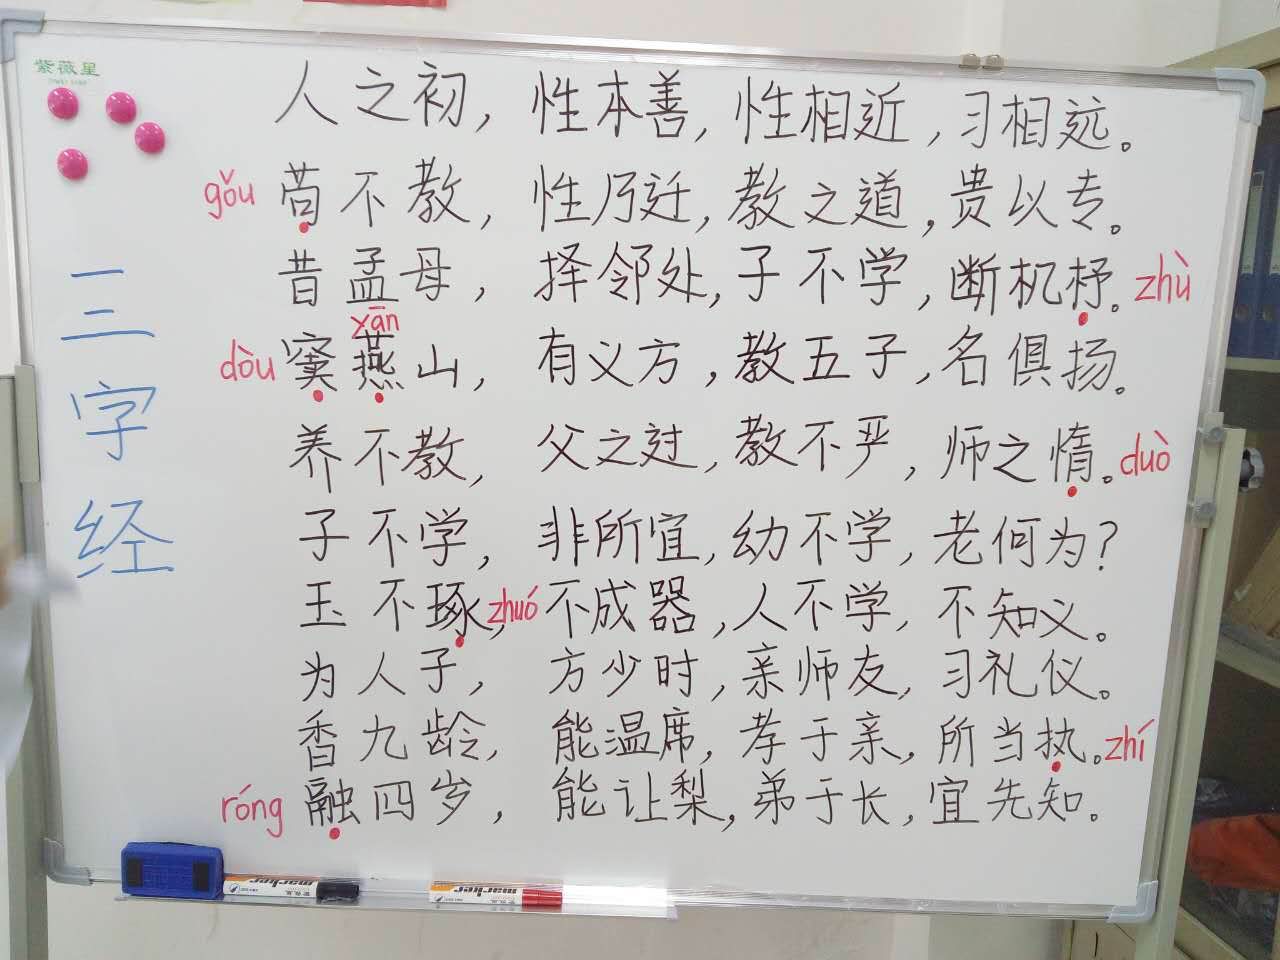 紫薇星
三字经
人之初，性本善，性相近，习相远。
gǒu 苟不教，性乃迁，教之道，贵以专。
昔孟母，择邻处，子不学，断机杼。zhù
yān
dòu 窦燕山，有义方，教五子，名俱扬。
养不教，父之过，教不严，师之惰。duò
子不学，非所宜，幼不学，老何为？
玉不琢，zhuó 不成器，人不学，不知义。
为人子，方少时，亲师友，习礼仪。
香九龄，能温席，孝于亲，所当执。zhí
róng 融四岁，能让梨，弟于长，宜先知。
marker
marker